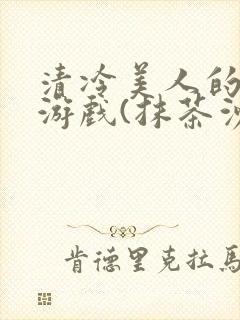 清冷美人的
游戏(抹茶
肯德里克拉